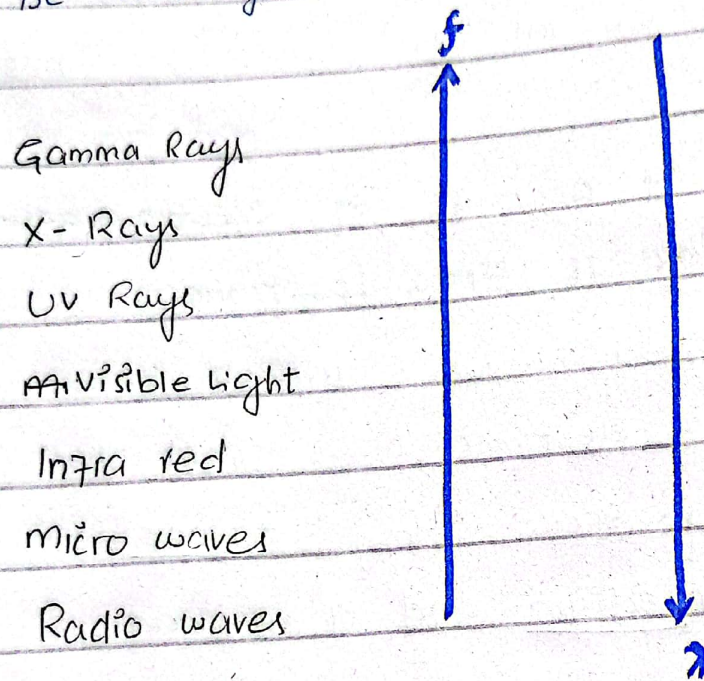 f
Gamma Rays
X- Rays
UV Rays
Visible Light
Infra red
Micro waves
Radio waves
λ